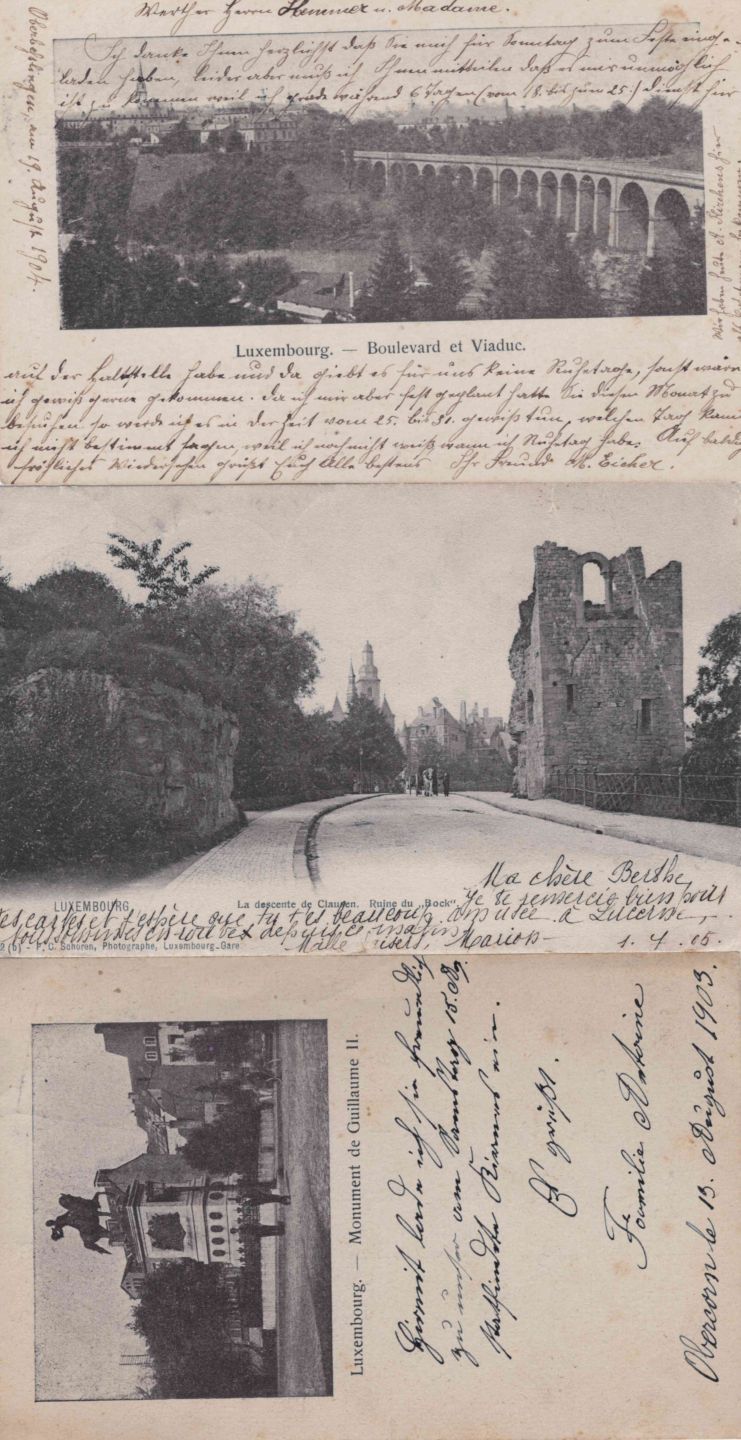 Werther Herrn Hemmer u. Madame.
Ich danke Ihnen herzlichst daß Sie mich für Sonntag zum Feste einge-
laden haben, leider aber muß ich Ihnen mitteilen daß es mir unmöglich
ist zu kommen weil ich grade während 6 Tagen (vom 18. bis zum 25.) Dienst hier
am 19. August 1904.
Wir haben heute
Luxembourg. — Boulevard et Viaduc.
auf der Haltstelle habe und da giebt es für uns keine Ruhetage, sonst wäre
ich gewiß gerne gekommen. Da ich mir aber fest geplant hatte Sie diesen Monat zu
besuchen so werde ich es in der Zeit vom 25. bis 31. gewiß tun, welchen Tag kann
ich nicht bestimmt sagen, weil ich noch nicht weiß wann ich Ruhetag habe. Auf baldig
fröhliches Wiedersehen grüßt Euch Alle bestens Ihr Freund M. Eicher.
Ma chère Berthe,
Je te remercie bien pour
LUXEMBOURG.
La descente de Clausen. Ruine du „Bock".
tes cartes et j'espère que tu t'es beaucoup amusée à Lucerne.
Nous sommes en depuis ce matin
2 (b) - P. C. Schoren, Photographe, Luxembourg-Gare
Mille Marion
1. 4. 05.
Luxembourg. — Monument de Guillaume II.
Hiermit lade ich Sie freundlich
zu unser am Samstag 15. Aug.
stattfindete Kirmes ein.
Es grüßt.
Familie Antoine
Obercorn le 13. August 1903.